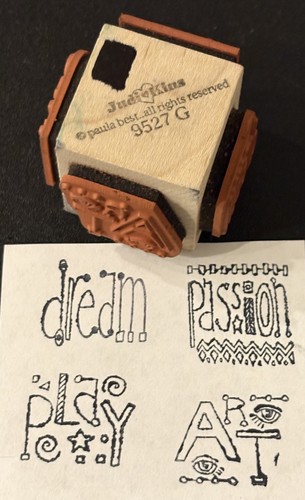 JudiKins
© paula best..all rights reserved
9527 G
dream
passion
play
ART